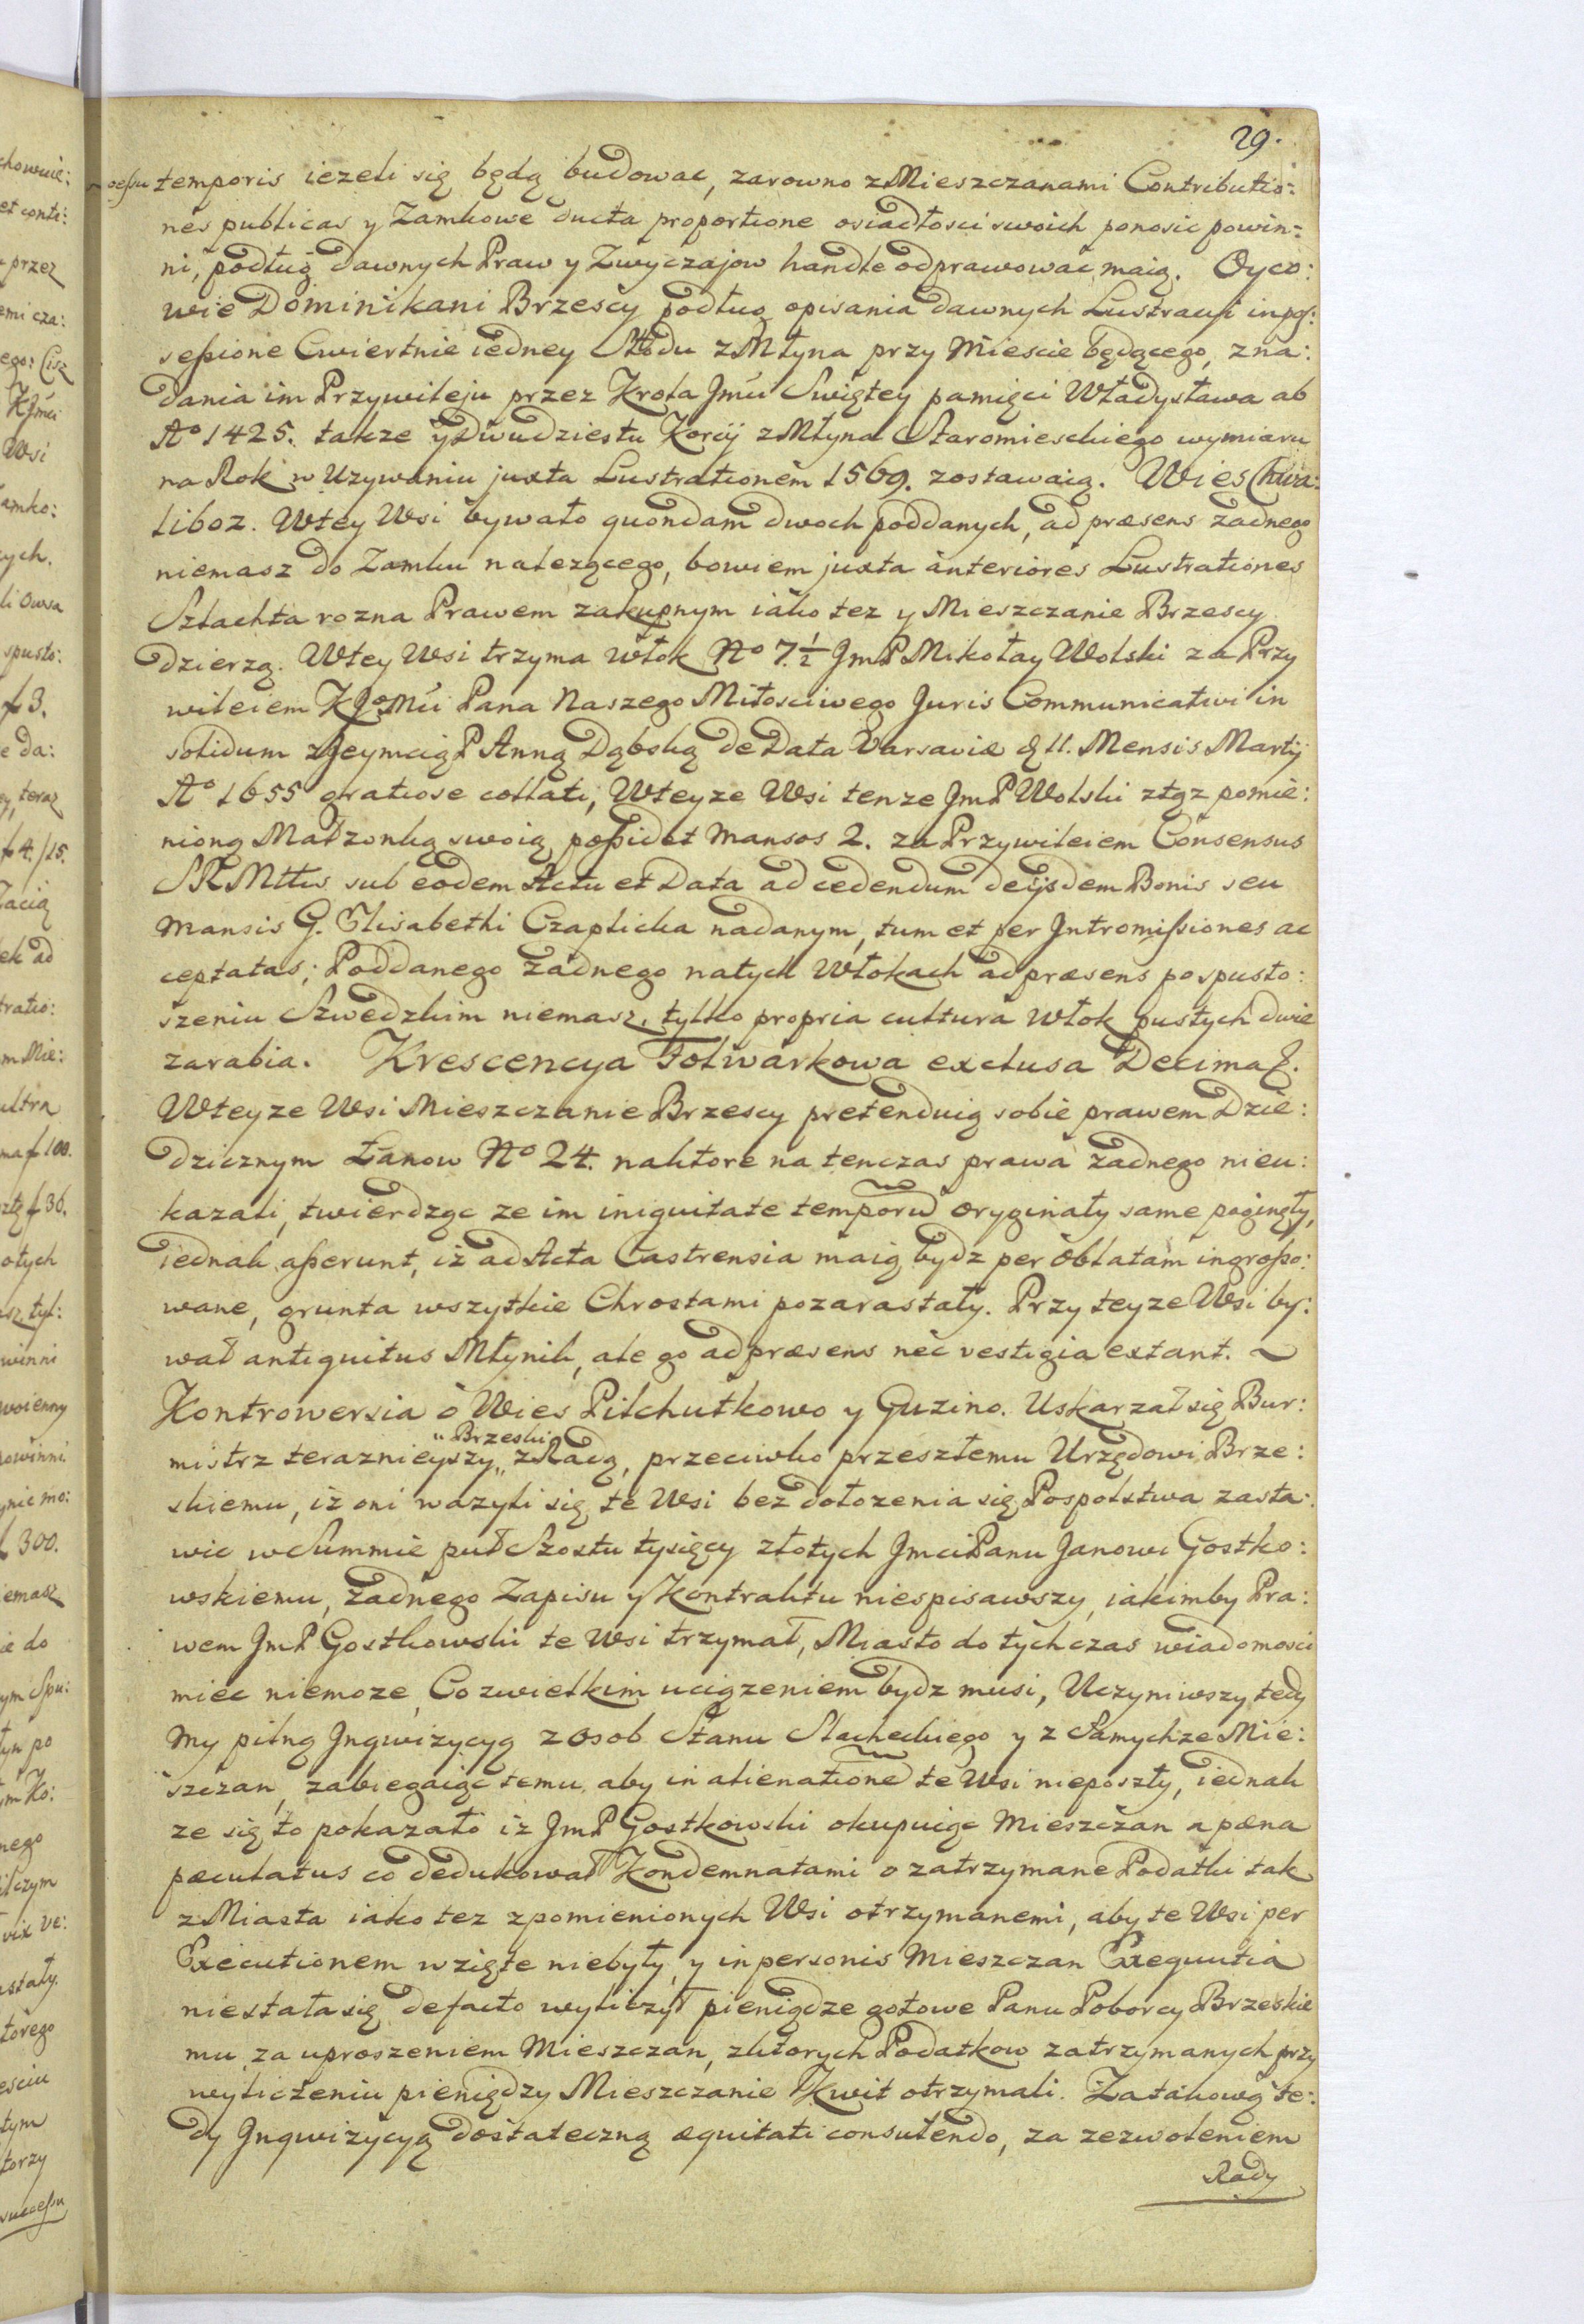 29.
cessu temporis iezeli się będą budować, zarowno z Mieszczanami Contributio:
nes publicas y Zamkowe ducta proportione osiadłosci swoich ponosic powin:
ni, podług dawnych Praw y Zwyczajow handle odprawować maią. Oyco:
wie Dominikani Brzescy podług opisania dawnych Lustracyi in pos:
sessione Cwiertnie iedney Słodu z Młyna przy Miescie będącego, z na:
dania im Przywileju przez Krola Jmći Swiętey pamięci Władysława ab
Aº 1425. takze y Dwudziestu Korcy z Młyna Staromieskiego wymiaru
na Rok w Uzywaniu juxta Lustrationem 1569. zostawaią. Wies Chwa:
liboz. W tey Wsi bywało quondam dwoch poddanych, ad præsens zadnego
niemasz do Zamku nalezącego, bowiem juxta anteriores Lustrationes
Szlachta rozna Prawem zakupnym iako tez y Mieszczanie Brzescy
dzierzą. W tey Wsi trzyma włok Nº 7½ JmP Mikołay Wolski za Przy
wileiem K Jº Mći Pana Naszego Miłosciwego Juris Communicativi in
solidum z Jeymcią P Anną Dąbską de Data Varsaviæ 11. Mensis Martij
Aº 1655 gratiose collati, W teyze Wsi tenze JmP Wolski z tąz pomie:
nioną Małzonką swoią possidet Mansos 2. za Przywileiem Consensus
SRMttis sub eodem Actu et Data ad cedendum de ijsdem Bonis seu
Mansis G. Elisabethi Czaplicka nadanym, tum et per Intromissiones ac
ceptatas; Poddanego zadnego na tych Włokach ad præsens po spusto:
szeniu Szwedzkim niemasz, tylko propria cultura Włok pustych dwie
zarabia. Krescencya Folwarkowa exclusa Decima
W teyze Wsi Mieszczanie Brzescy pretenduią sobie prawem Dzie:
dzicznym Łanow Nº 24. na ktore na tenczas prawa zadnego nieu:
kazali, twierdząc ze im iniquitate temporu͠ oryginały same poginęły,
iednak asserunt, iż ad Acta Castrensia maią bydz per oblatam ingrosso:
wane, grunta wszytkie Chrostami pozarastały. Przy teyze Wsi by:
wał antiquitus Młynik, ale go ad præsens nec vestigia extant.
Kontrowersia o Wies Pilchutkowo y Guzino. Uskarzał się Bur:
mistrz teraznieyszy „Brzeski z Radą, przeciwko przeszłemu Urzędowi Brze:
skiemu, iz oni wazyli się te Wsi bez dołozenia się Pospolstwa zasta:
wic w Summie puł Szostu tysięcy złotych Jmci Panu Janowi Gostko:
wskiemu, zadnego Zapisu y Kontraktu niespisawszy, iakimby Pra:
wem JmP Gostkowski te Wsi trzymał, Miasto do tychczas wiadomosci
miec niemoze, Co z wielkim uciązeniem bydz musi, Uczyniwszy tedy
my pilną Inqwizycyą z Osob Stanu Slacheckiego y z Samychze Mie:
szczan, zabiegaiąc temu, aby in alienatione͠ te Wsi nieposzły, iednak
ze się to pokazało iz JmP Gostkowski okupuiąc Mieszczan a pœna
pœculatus co dedukował Kondemnatami o zatrzymane Podatki tak
z Miasta iako tez z pomienionych Wsi otrzymanemi, aby te Wsi per
Executionem wzięte niebyły, y in personis Mieszczan Exequutia
niestała się, de facto wyliczył pieniądze gotowe Panu Poborcy Brzeskie
mu za uproszeniem Mieszczan, z ktorych Podatkow zatrzymanych przy
wyliczeniu pieniędzy Mieszczanie Kwit otrzymali. Za takową te:
dy Inqwizycyą dostateczną æquitati consulendo, za zezwoleniem
Rady